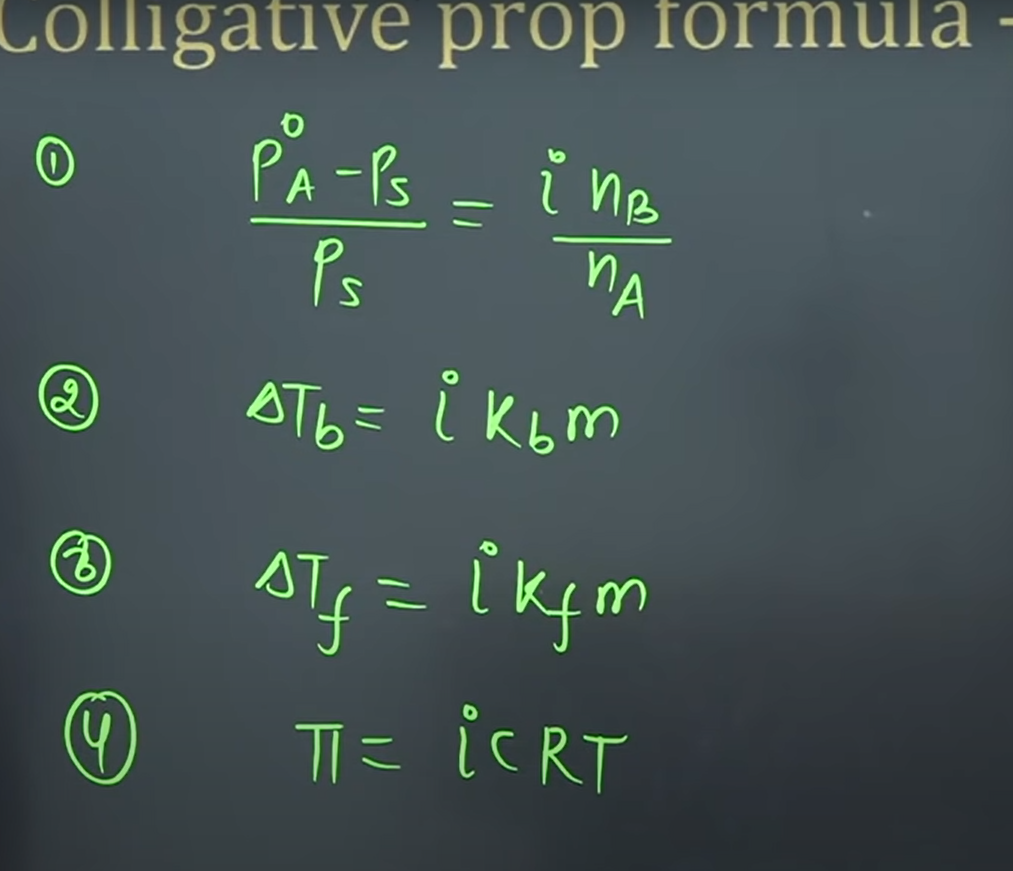 Colligative prop formula -
① (P°A - Ps) / Ps = i nB / nA
② ΔTb = i Kb m
③ ΔTf = i Kf m
④ π = i C R T